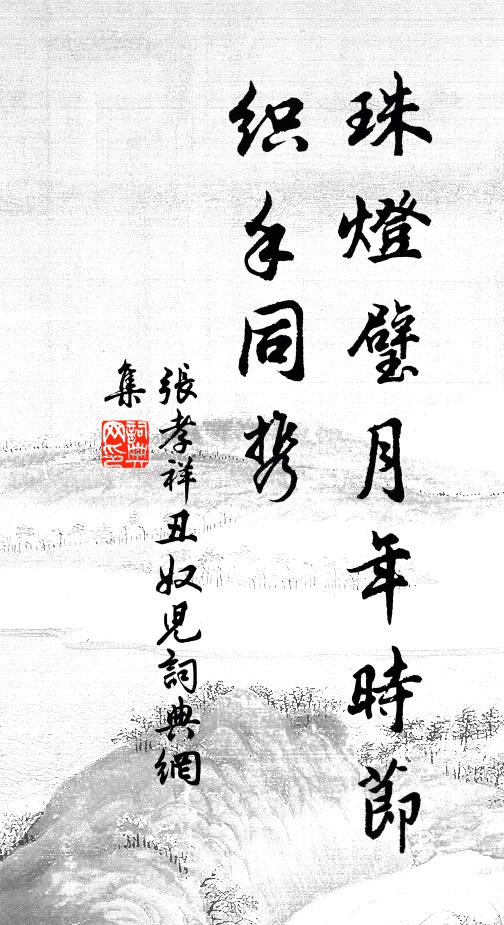 珠燈璧月年時節
织手同携
張孝祥丑奴兒詞典網
集